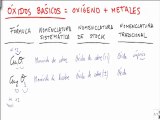 ÓXIDOS BÁSICOS = OXÍGENO + METALES
FÓRMULA NOMENCLATURA SISTEMÁTICA NOMENCLATURA DE STOCK NOMENCLATURA TRADICIONAL
CuO Monóxido de cobre Óxido de cobre (II) Óxido cúprico
Cu₂O Monóxido de dicobre Óxido de cobre (I) Óxido